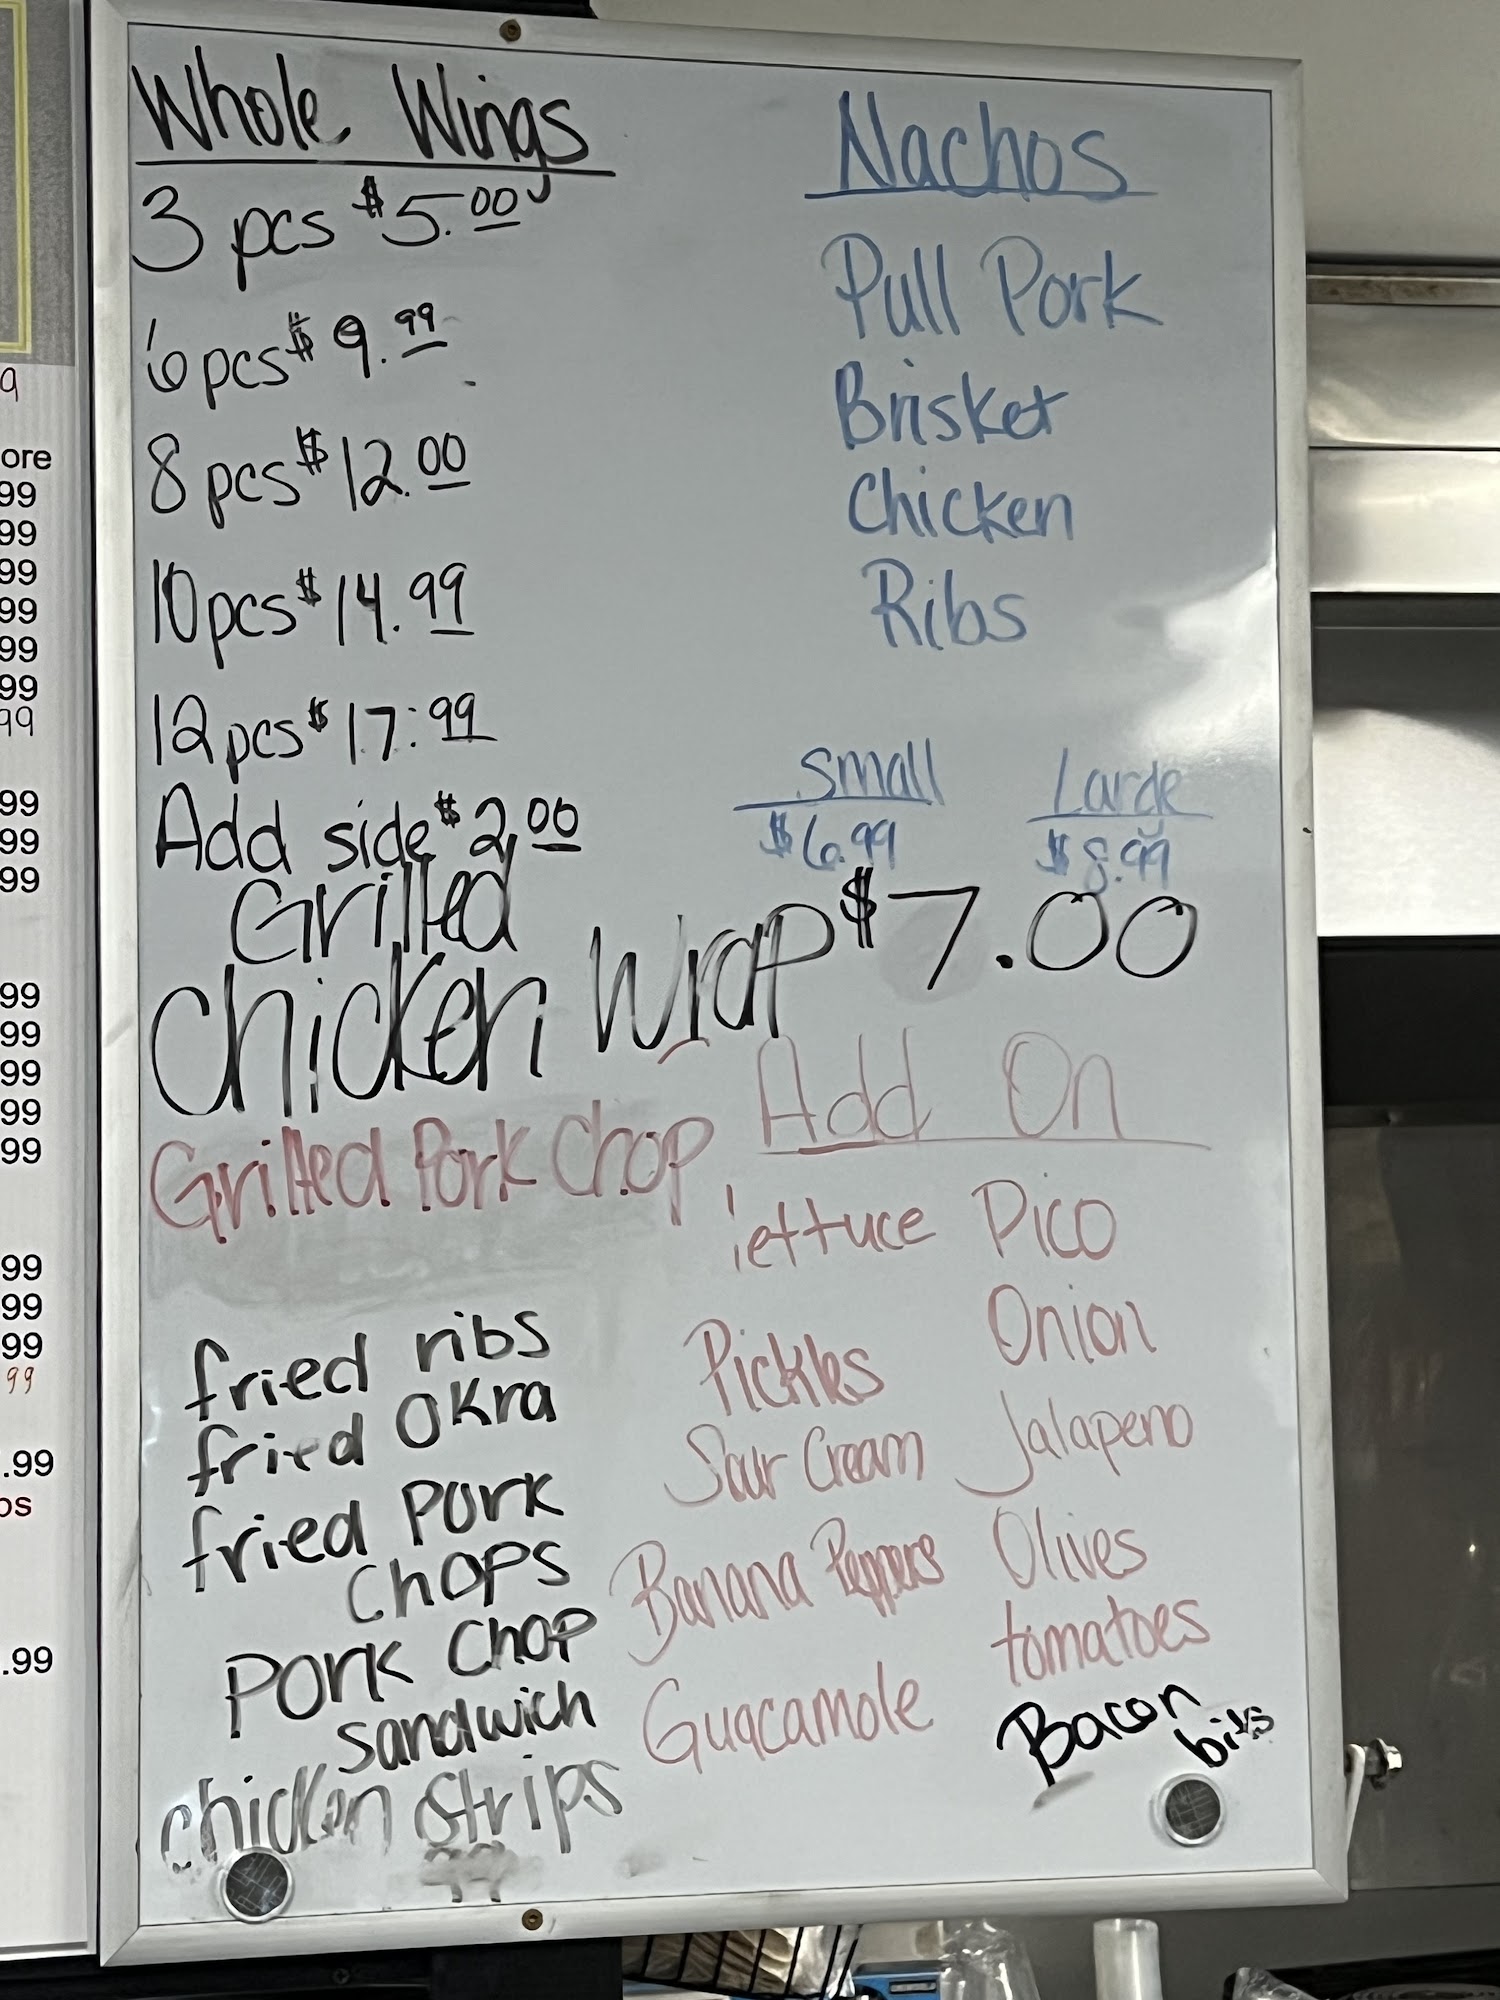 Whole Wings
3 pcs $5.00
6 pcs $ 9.99
8 pcs $12.00
10 pcs $14.99
12 pcs $17.99
Add side $2.00
Nachos
Pull Pork
Brisket
Chicken
Ribs
Small Large
$6.99 $8.99
Grilled
Chicken Wrap $7.00
Grilled Pork Chop
fried ribs
fried okra
fried Pork
Chops
Pork Chop
Sandwich
chicken strips
Add On
lettuce Pico
Onion
Pickles
Jalapeno
Sour Cream
Olives
Banana Peppers
tomatoes
Guacamole
Bacon
bits
9
ore
99
99
99
99
99
99
99
99
99
99
99
99
99
99
99
99
99
99
99
.99
os
.99